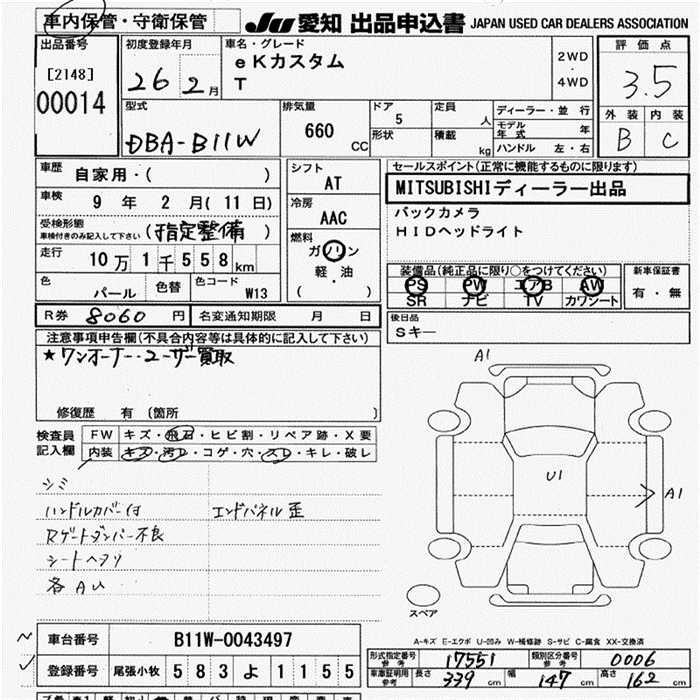 車内保管・守衛保管
JU 愛知 出品申込書 JAPAN USED CAR DEALERS ASSOCIATION
出品番号
[2148]
00014
初度登録年月
26 2 月
車名・グレード
eKカスタム
T
2WD
・
4WD
評価点
3.5
外装 内装
B C
型式
DBA-B11W
排気量
660
CC
ドア
5
形状
定員
人
積載
kg
ディーラー・並行
モデル年式 年
ハンドル 左・右
車歴
自家用・( )
車検
9 年 2 月 (11 日)
受検形態
車検付きのみ記入して下さい
(指定整備)
走行
10万1千558km
色
パール
色替
色コード
W13
シフト
AT
冷房
AAC
燃料
ガソリン
軽・油
( )
セールスポイント(正常に機能するものに限ります)
MITSUBISHIディーラー出品
バックカメラ
HIDヘッドライト
装備品(純正品に限り○をつけてください)
PS PW エアB AW
SR ナビ TV カワシート
新車保証書
有・無
R券 8060 円
名変通知期限 月 日
後日品
Sキー
注意事項申告欄(不具合内容等は具体的に記入して下さい)
★ワンオーナー・ユーザー買取
修復歴 有 (箇所 )
検査員
記入欄
FW キズ・飛石・ヒビ割・リペア跡・X要
内装 キズ・汚レ・コゲ・穴・スレ・キレ・破レ
シミ
ハンドルカバー付 エンドパネル歪
Rゲートダンパー不良
シートヘタリ
各AU
A1
U1
A1
スペア
A-キズ E-エクボ U-凹み W-補修跡 S-サビ C-腐食 XX-交換済
車台番号 B11W-0043497
登録番号 尾張小牧 583 よ 1155
形式指定番号
参考
17551
類別区分番号
参考
0006
車庫証明用
参考
長さ 339 cm 幅 147 cm 高さ 162 cm